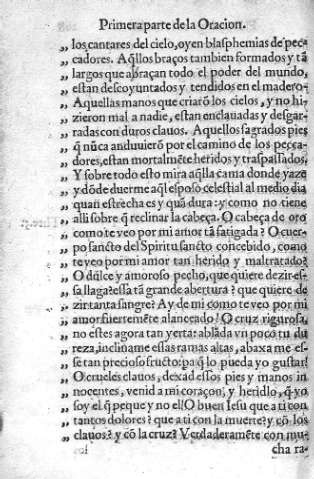 Primera parte de la Oracion.
„ los cantares del cielo, oyen blasphemias de pec-
„ cadores. Aq̃llos braços tambien formados y tã
„ largos que abraçan todo el poder del mundo,
„ estan descoyuntados y tendidos en el madero.
„ Aquellas manos que criarõ los cielos, y no hi-
„ zieron mal a nadie, estan enclauadas y desgar-
„ radas con duros clauos. Aquellos sagrados pies
„ q̃ nũca anduuierõ por el camino de los pecca-
„ dores, estan mortalmẽte heridos y traspassados.
„ Y sobre todo esto mira aq̃lla cama donde yaze
„ y dõde duerme aq̃l esposo celestial al medio dia
„ quan estrecha es y quã dura: y como no tiene
„ alli sobre q̃ reclinar la cabeça. O cabeça de oro
„ como te veo por mi amor tã fatigada? O cuer-
„ po sancto del Spiritu sancto concebido, como
„ te veo por mi amor tan herido y maltratado?
„ O dulce y amoroso pecho, que quiere dezir es-
„ sa llaga? essa tã grande abertura? que quiere de
„ zir tanta sangre? Ay de mi como te veo por mi
„ amor fuertemẽte alanceado! O cruz rigurosa,
„ no estes agora tan yerta: ablãda vn poco tu du
„ reza, inclina me essas ramas altas, abaxa me es-
„ se tan precioso fructo: pa q̃ lo pueda yo gustar!
„ O crueles clauos, dexad essos pies y manos in
„ nocentes, venid a mi coraçon, y heridlo, q̃ yo
„ soy el q̃ peque y no el! O buen Iesu que a ti con
„ tantos dolores? que a ti con la muerte? y cõ los
„ clauos? y cõ la cruz? Verdaderamẽte con mu-
cha ra-